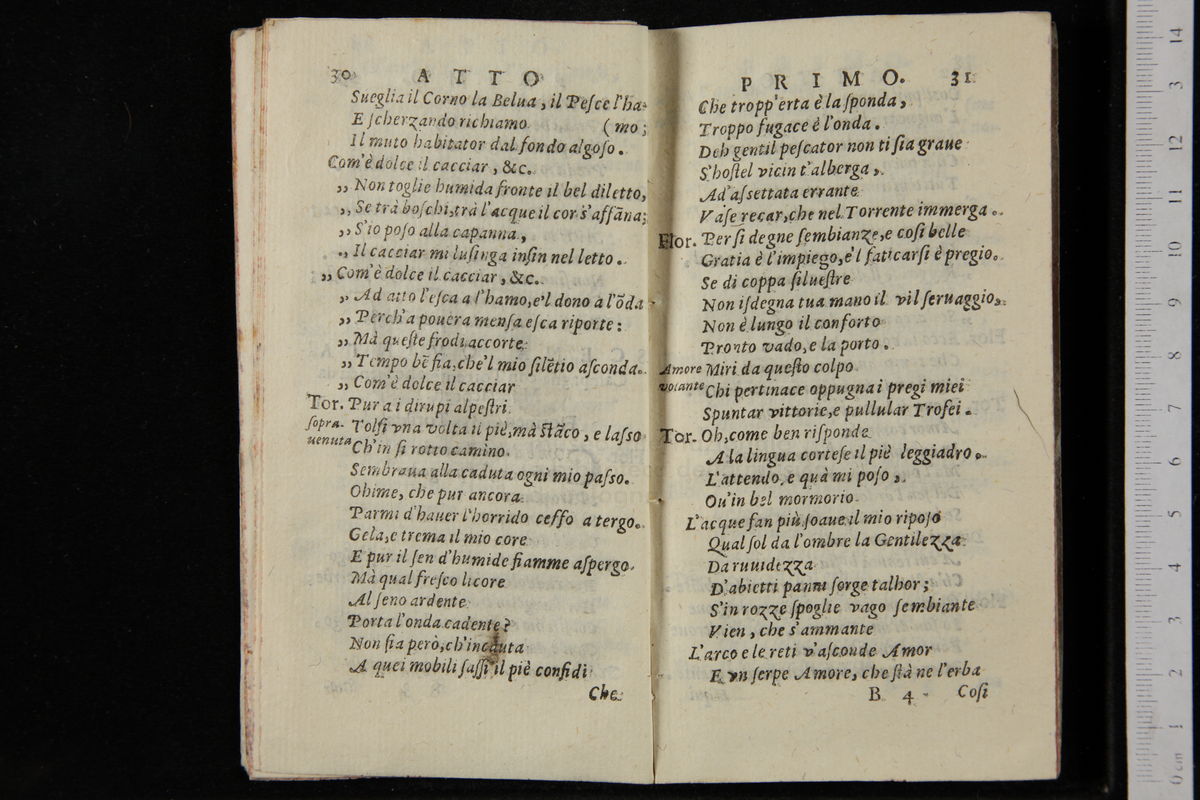 30 ATTO
Sueglia il Corno la Belua, il Pesce l'ha-
E scherzando richiamo (mo;
Il muto habitator dal fondo algoso.
Com'è dolce il cacciar, &c.
„ Non toglie humida fronte il bel diletto,
„ Se trà boschi, trà l'acque il cor s'affāna;
„ S'io poso alla capanna,
„ Il cacciar mi lusinga insin nel letto.
„ Com'è dolce il cacciar, &c.
„ Ad atto l'esca a l'hamo, e'l dono a l'ōda
„ Perch'a pouera mensa esca riporte:
„ Mà queste frodi accorte
„ Tempo bē fia, che'l mio silētio asconda.
„ Com'è dolce il cacciar
Tor. Pur a i dirupi alpestri
sopra- Tolsi vna volta il piè, mà stāco, e lasso
uenuta Ch'in sì rotto camino
Sembraua alla caduta ogni mio passo.
Ohime, che pur ancora
Parmi d'hauer l'horrido ceffo a tergo.
Gela, e trema il mio core
E pur il sen d'humide fiamme aspergo.
Mà qual fresco licore
Al seno ardente
Porta l'onda cadente?
Non fia però, ch'incauta
A quei mobili sassi il piè confidi
Che
PRIMO. 31
Che tropp'erta è la sponda,
Troppo fugace è l'onda.
Deh gentil pescator non ti sia graue
S'hostel vicin t'alberga,
Ad'assettata errante
Vase recar, che nel Torrente immerga.
Flor. Per si degne sembianze, e cosi belle
Gratia è l'impiego, e'l faticarsi è pregio.
Se di coppa siluestre
Non isdegna tua mano il vil seruaggio,
Non è lungo il conforto
Pronto vado, e la porto.
Amore Miri da questo colpo
volante Chi pertinace oppugna i pregi miei
Spuntar vittorie, e pullular Trofei.
Tor. Oh, come ben risponde
A la lingua cortese il piè leggiadro.
L'attendo, e quà mi poso,
Ou'in bel mormorio
L'acque fan più soaue il mio riposo
Qual sol da l'ombre la Gentilezza
Da ruuidezza
D'abietti panni sorge talhor;
S'in rozze spoglie vago sembiante
Vien, che s'ammante
L'arco e le reti v'asconde Amor
E vn serpe Amore, che stà ne l'erba
B 4 Cosi